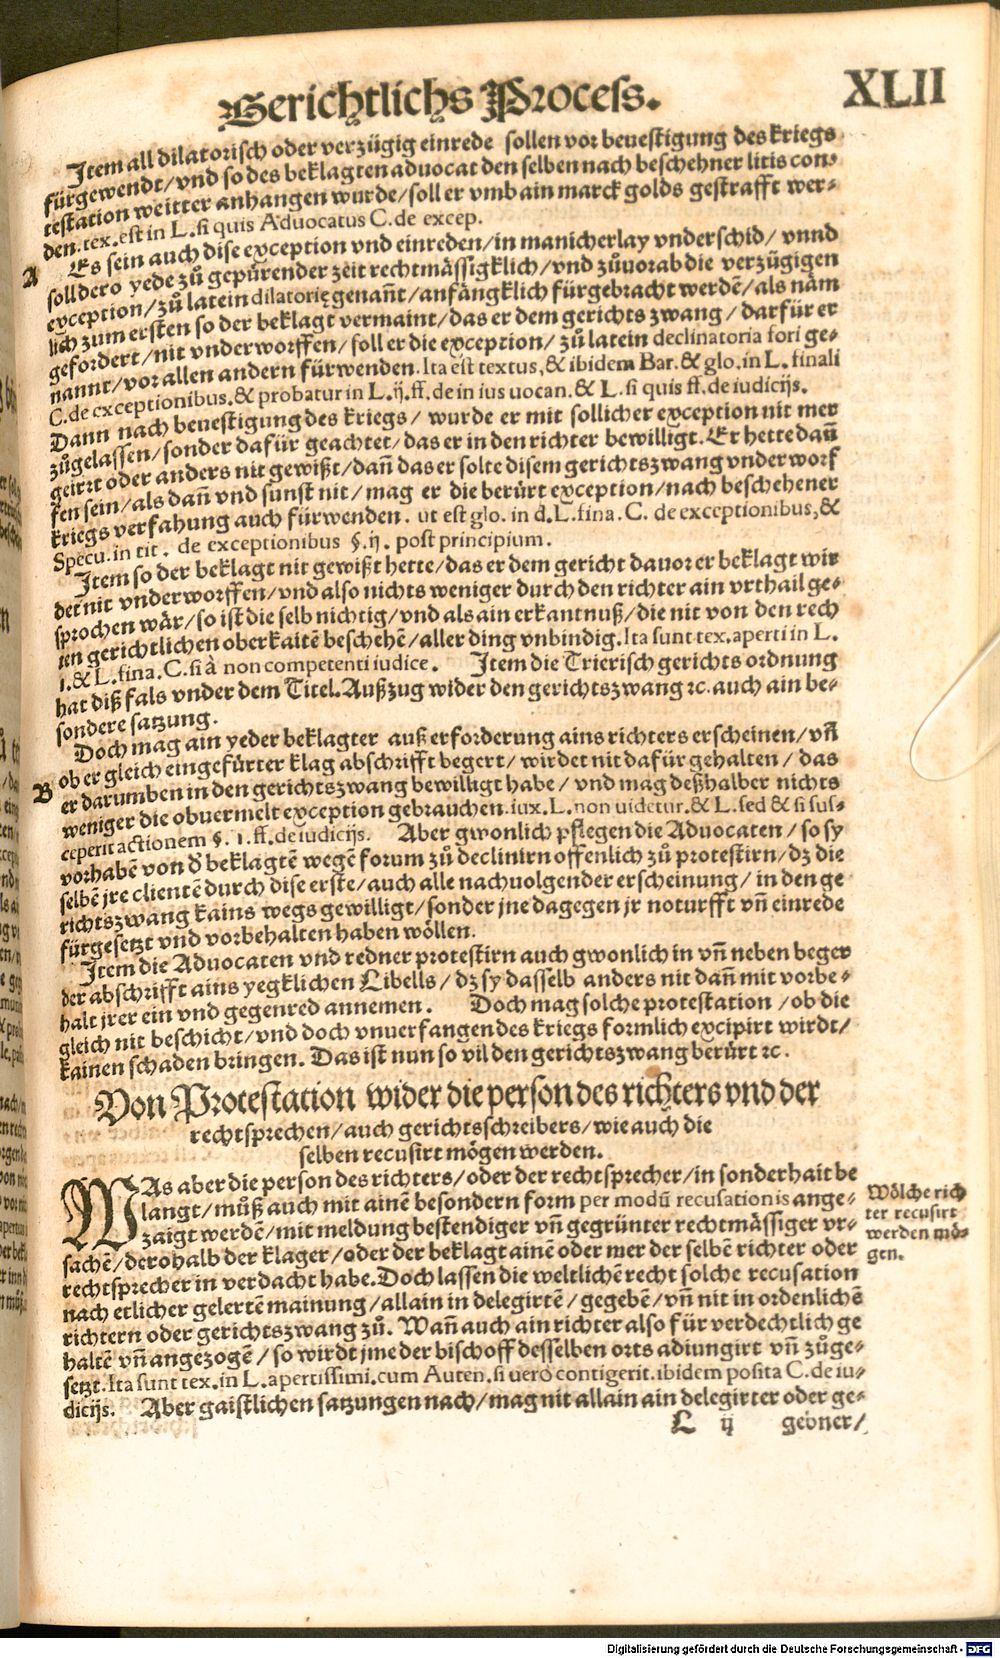 Gerichtlichs Process.
XLII
Item all dilatorisch oder verzügig einrede sollen vor beuestigung des kriegs
fürgewendt/ vnd so des beklagten aduocat den selben nach beschehner litis con-
testation weitter anhangen wurde/ soll er vmb ain marck golds gestrafft wer-
den. tex. est in L. si quis Aduocatus C. de excep.
A
Es sein auch dise exception vnd einreden/ in manicherlay vnderschid/ vnnd
soll dero yede zů gepürender zeit rechtmässigklich/ vnd zůuorab die verzügigen
exception/ zů latein dilatorię genant̄/ anfängklich fürgebracht werdē/ als näm
lich zum ersten so der beklagt vermaint/ das er dem gerichts zwang/ darfür er
gefordert/ nit vnderworffen/ soll er die exception/ zů latein declinatoria fori ge-
nannt/ vor allen andern fürwenden. Ita est textus, & ibidem Bar. & glo. in L. finali
C. de exceptionibus. & probatur in L. ij. ff. de in ius uocan. & L. si quis ff. de iudicijs.
Dann nach beuestigung des kriegs/ wurde er mit sollicher exception nit mer
zůgelassen/ sonder dafür geachtet/ das er in den richter bewilligt. Er hette dañ
geirrt oder anders nit gewißt/ dañ das er solte disem gerichtszwang vnderworf
fen sein/ als dañ vnd sunst nit/ mag er die berürt exception/ nach beschehener
kriegs verfahung auch fürwenden. ut est glo. in d. L. fina. C. de exceptionibus, &
Specu. in tit. de exceptionibus §. ij. post principium.
Item so der beklagt nit gewißt hette/ das er dem gericht dauor er beklagt wir
det nit vnderworffen/ vnd also nichts weniger durch den richter ain vrthail ge-
sprochen wär/ so ist die selb nichtig/ vnd als ain erkantnuß/ die nit von den rech
ten gerichtlichen oberkaitē beschehē/ aller ding vnbindig. Ita sunt tex. aperti in L.
1. & L. fina. C. si à non competenti iudice. Item die Trierisch gerichts ordnung
hat diß fals vnder dem Titel. Außzug wider den gerichtszwang ꝛc. auch ain be-
sondere satzung.
Doch mag ain yeder beklagter auß erforderung ains richters erscheinen/ vñ
B
ob er gleich eingefürter klag abschrifft begert/ wirdet nit dafür gehalten/ das
er darumben in den gerichtszwang bewilligt habe/ vnd mag deßhalber nichts
weniger die obuermelt exception gebrauchen. iux. L. non uidetur. & L. sed & si sus-
ceperit actionem §. 1. ff. de iudicijs. Aber gwonlich pflegen die Aduocaten/ so sy
vorhabē von d̄ beklagtē wegē forum zů declinirn offenlich zů protestirn/ dz die
selbē jre clientē durch dise erste/ auch alle nachuolgender erscheinung/ in den ge
richtszwang kains wegs gewilligt/ sonder jne dagegen jr noturfft vñ einrede
fürgesetzt vnd vorbehalten haben wöllen.
Item die Aduocaten vnd redner protestirn auch gwonlich in vñ neben beger
der abschrifft ains yegklichen Libells/ dz sy dasselb anders nit dañ mit vorbe-
halt jrer ein vnd gegenred annemen. Doch mag solche protestation/ ob die
gleich nit beschicht/ vnd doch vnuerfangen des kriegs formlich excipirt wirdt/
kainen schaden bringen. Das ist nun so vil den gerichtszwang berürt ꝛc.
Von Protestation wider die person des richters vnd der
rechtsprechen/ auch gerichtsschreibers/ wie auch die
selben recusirt mögen werden.
WAs aber die person des richters/ oder der rechtsprecher/ in sonderhait be
langt/ můß auch mit ainē besondern form per modū recusationis ange-
zaigt werdē/ mit meldung bestendiger vñ gegrünter rechtmässiger vr-
sachē/ derohalb der klager/ oder der beklagt ainē oder mer der selbē richter oder
rechtsprecher in verdacht habe. Doch lassen die weltlichē recht solche recusation
nach etlicher gelertē mainung/ allain in delegirtē/ gegebē/ vñ nit in ordenlichē
richtern oder gerichtszwang zů. Wañ auch ain richter also für verdechtlich ge
haltē vñ angezogē/ so wirdt jme der bischoff desselben orts adiungirt vñ zůge-
setzt. Ita sunt tex. in L. apertissimi. cum Auten. si uero contigerit. ibidem posita C. de iu-
dicijs. Aber gaistlichen satzungen nach/ mag nit allain ain delegirter oder ge-
Wölche rich
ter recusirt
werden mö-
gen.
L ij
gebner/
Digitalisierung gefördert durch die Deutsche Forschungsgemeinschaft - DFG